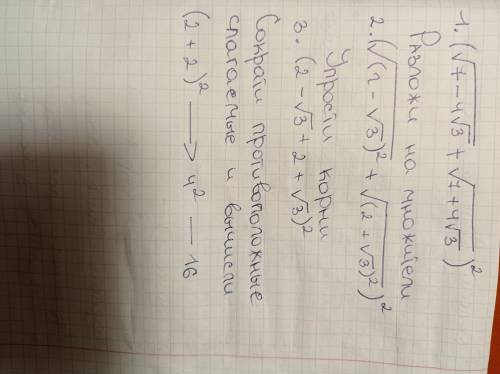 1. (√7-4√3 + √7+4√3)²
Разложи на множители
2. (√(2-√3)² + √(2+√3)²)²
Упрости корни
3. (2-√3 + 2 + √3)²
Сократи противоположные
слагаемые и вычисли
(2+2)² → 4² — 16